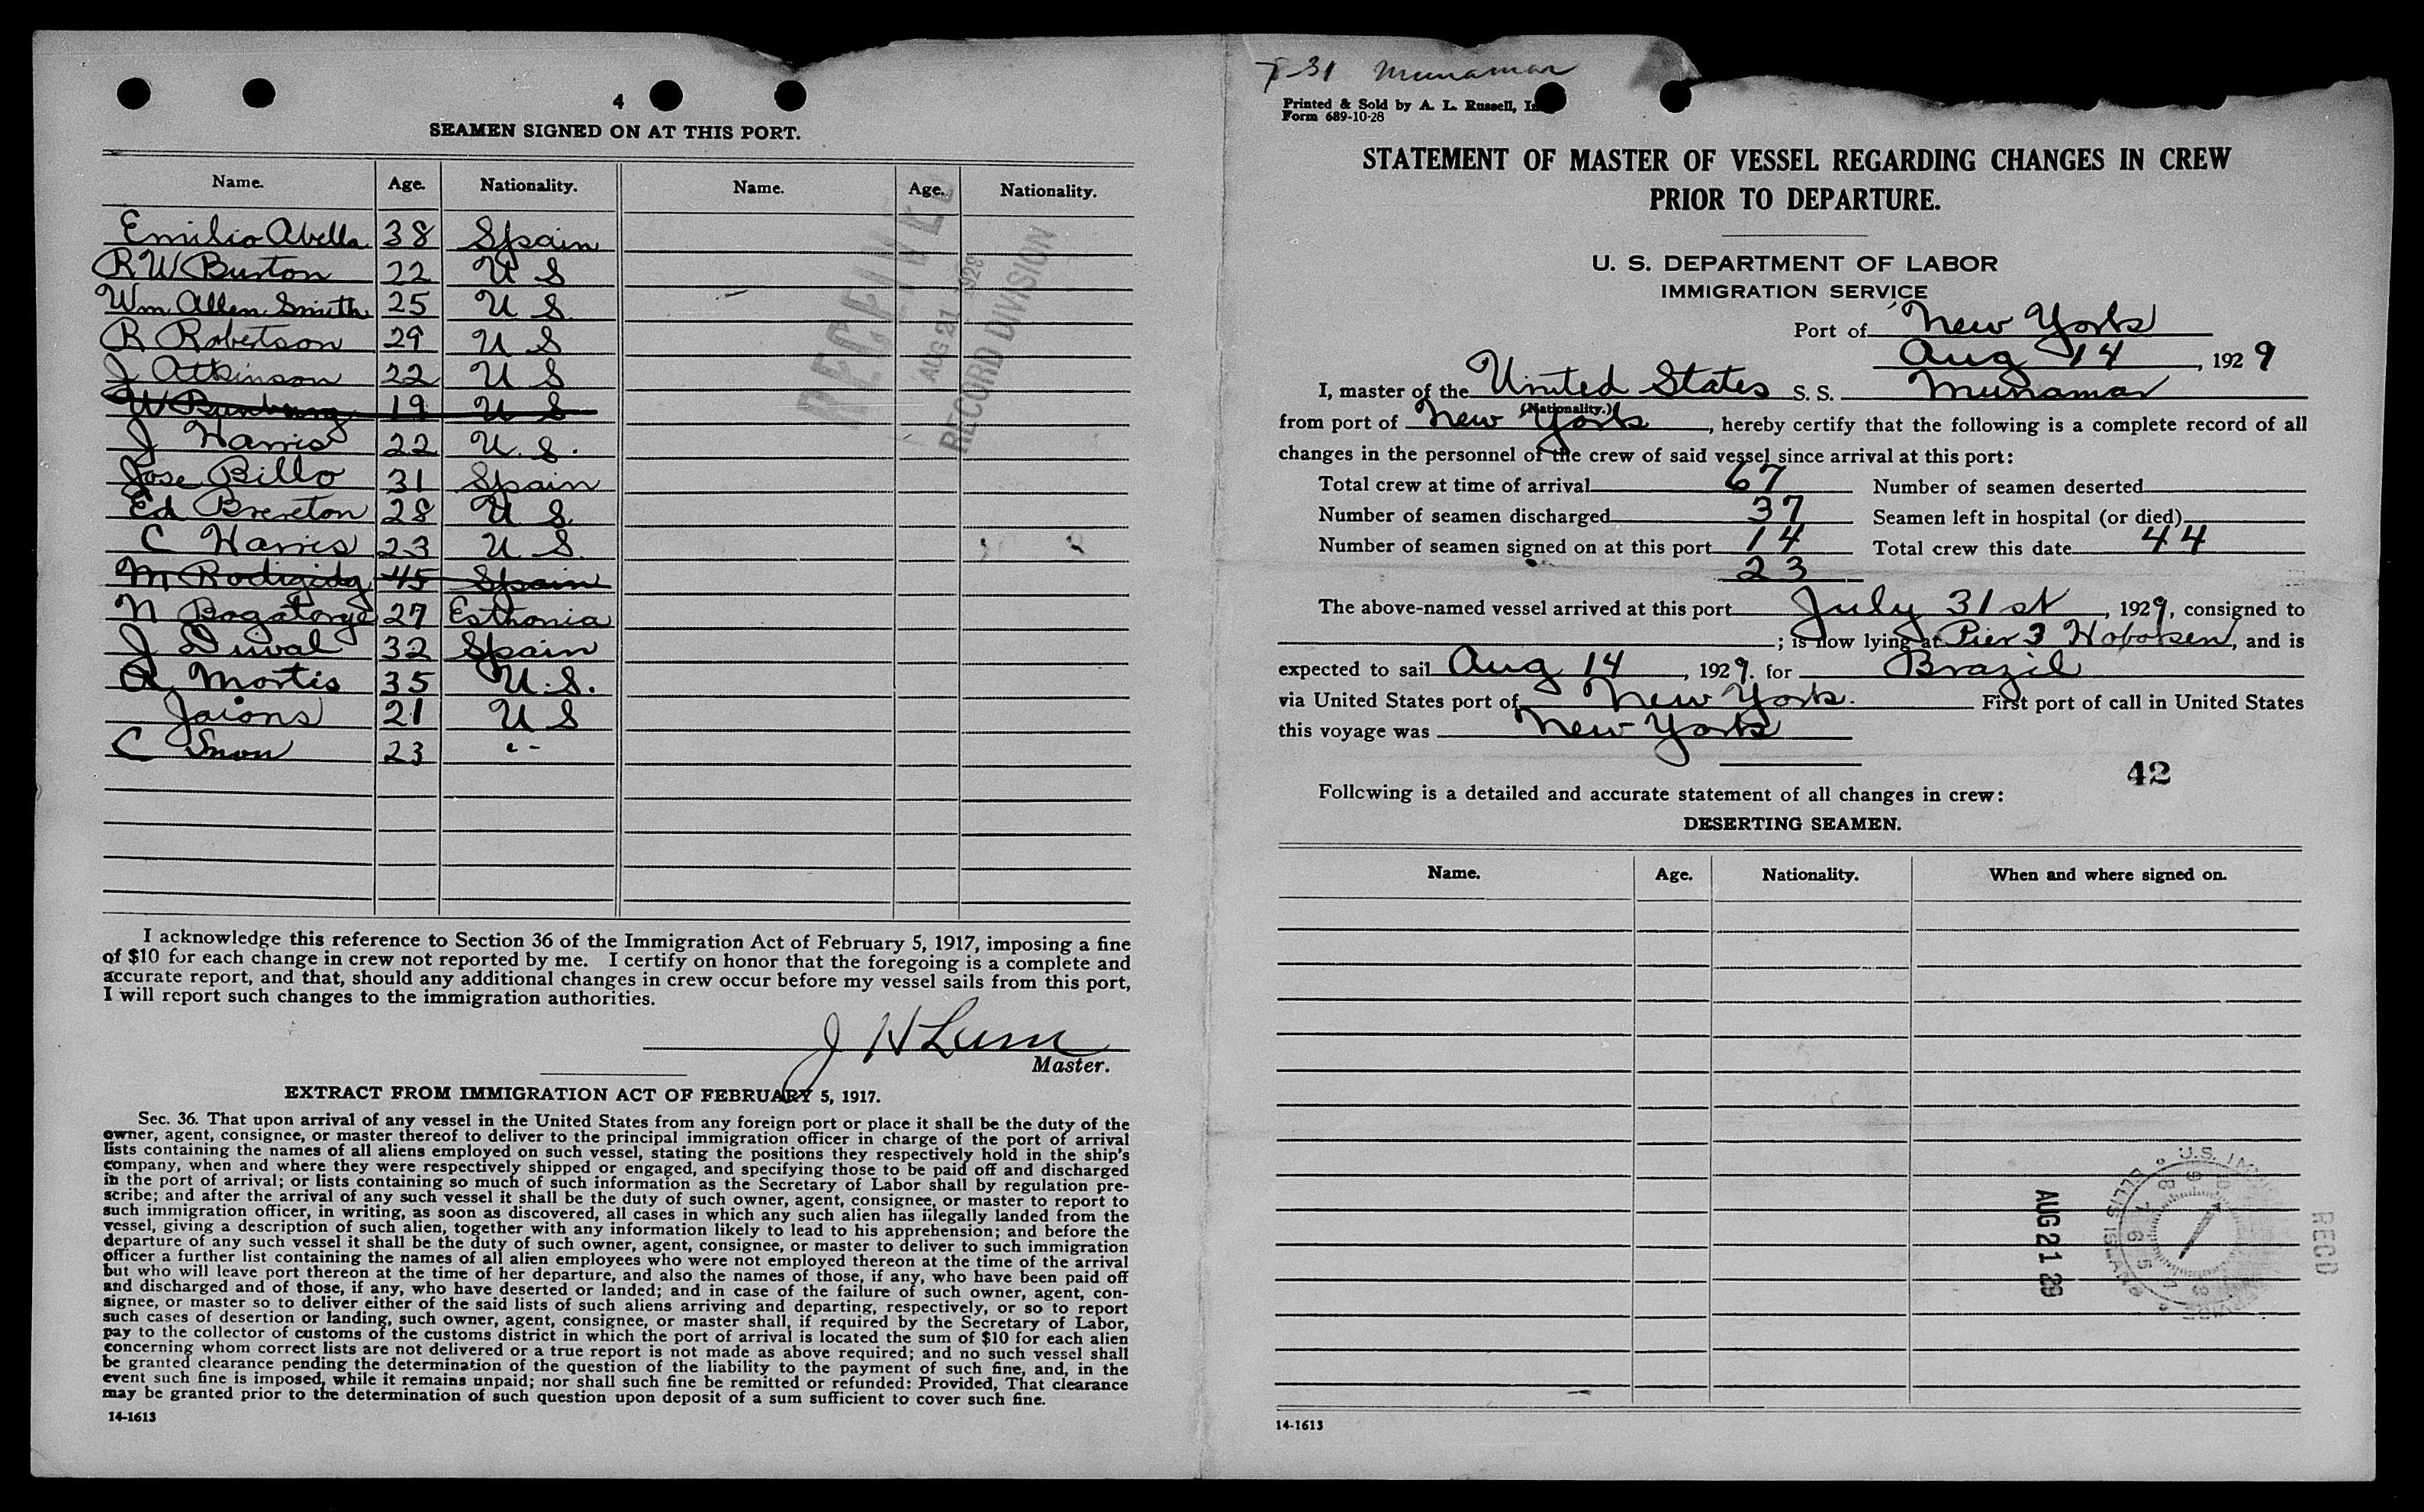 4
SEAMEN SIGNED ON AT THIS PORT.
Name. Age. Nationality. Name. Age. Nationality.
Emilio Abella 38 Spain
R W Burton 22 U S
Wm Allen Smith 25 U S.
R Robertson 29 U S
J Atkinson 22 U S
W 19 U S
J Harris 22 U. S.
Jose Billo 31 Spain
Ed Brereton 28 U S.
C Harris 23 U S.
M 45 Spain
N 27 Esthonia
J Duval 32 Spain
A Mortis 35 U. S.
21 U S
C Snow 23 "
RECEIVED
AUG 21 1929
RECORD DIVISION
I acknowledge this reference to Section 36 of the Immigration Act of February 5, 1917, imposing a fine
of $10 for each change in crew not reported by me. I certify on honor that the foregoing is a complete and
accurate report, and that, should any additional changes in crew occur before my vessel sails from this port,
I will report such changes to the immigration authorities.
J H Lum
Master.
EXTRACT FROM IMMIGRATION ACT OF FEBRUARY 5, 1917.
Sec. 36. That upon arrival of any vessel in the United States from any foreign port or place it shall be the duty of the
owner, agent, consignee, or master thereof to deliver to the principal immigration officer in charge of the port of arrival
lists containing the names of all aliens employed on such vessel, stating the positions they respectively hold in the ship's
company, when and where they were respectively shipped or engaged, and specifying those to be paid off and discharged
in the port of arrival; or lists containing so much of such information as the Secretary of Labor shall by regulation pre-
scribe; and after the arrival of any such vessel it shall be the duty of such owner, agent, consignee, or master to report to
such immigration officer, in writing, as soon as discovered, all cases in which any such alien has illegally landed from the
vessel, giving a description of such alien, together with any information likely to lead to his apprehension; and before the
departure of any such vessel it shall be the duty of such owner, agent, consignee, or master to deliver to such immigration
officer a further list containing the names of all alien employees who were not employed thereon at the time of the arrival
but who will leave port thereon at the time of her departure, and also the names of those, if any, who have been paid off
and discharged and of those, if any, who have deserted or landed; and in case of the failure of such owner, agent, con-
signee, or master so to deliver either of the said lists of such aliens arriving and departing, respectively, or so to report
such cases of desertion or landing, such owner, agent, consignee, or master shall, if required by the Secretary of Labor,
pay to the collector of customs of the customs district in which the port of arrival is located the sum of $10 for each alien
concerning whom correct lists are not delivered or a true report is not made as above required; and no such vessel shall
be granted clearance pending the determination of the question of the liability to the payment of such fine, and, in the
event such fine is imposed, while it remains unpaid; nor shall such fine be remitted or refunded: Provided, That clearance
may be granted prior to the determination of such question upon deposit of a sum sufficient to cover such fine.
14-1613
7-31 Munamar
Printed & Sold by A. L. Russell,
Form 689-10-28
STATEMENT OF MASTER OF VESSEL REGARDING CHANGES IN CREW
PRIOR TO DEPARTURE.
U. S. DEPARTMENT OF LABOR
IMMIGRATION SERVICE
Port of New York
Aug 14, 1929
I, master of the United States S. S. Munamar
(Nationality.)
from port of New York, hereby certify that the following is a complete record of all
changes in the personnel of the crew of said vessel since arrival at this port:
Total crew at time of arrival 67 Number of seamen deserted
Number of seamen discharged 37 Seamen left in hospital (or died)
Number of seamen signed on at this port 14 Total crew this date 44
23
The above-named vessel arrived at this port July 31 st, 1929, consigned to
; is now lying at Pier 3 Hoboken, and is
expected to sail Aug 14, 1929. for Brazil
via United States port of New York. First port of call in United States
this voyage was New York
42
Following is a detailed and accurate statement of all changes in crew:
DESERTING SEAMEN.
Name. Age. Nationality. When and where signed on.
AUG 21 29
ELLIS ISLAND
RECD
14-1613